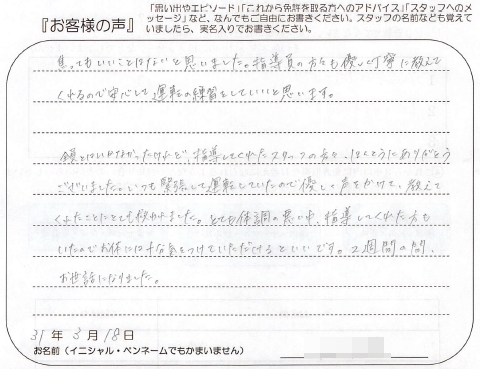 『お客様の声』
「思い出やエピソード」「これから免許を取る方へのアドバイス」「スタッフへのメ
ッセージ」など、なんでもご自由にお書きください。スタッフの名前なども覚えて
いましたら、実名入りでお書きください。
焦ってもいいことはないと思いました。指導員の方も優しく丁寧に教えて
くれるので安心して運転の練習をしていいと思います。
全員とはいかなかったけれど、指導してくれたスタッフの方々、ほんとうにありがとう
ございました。いつも緊張して運転していたので優しく声をかけて、教えて
くれたことにとても救われました。とても体調の悪い中、指導してくれた方も
いたのでお体には十分気をつけていただけるといいです。2週間の間、
お世話になりました。
31年3月18日
お名前(イニシャル・ペンネームでもかまいません)